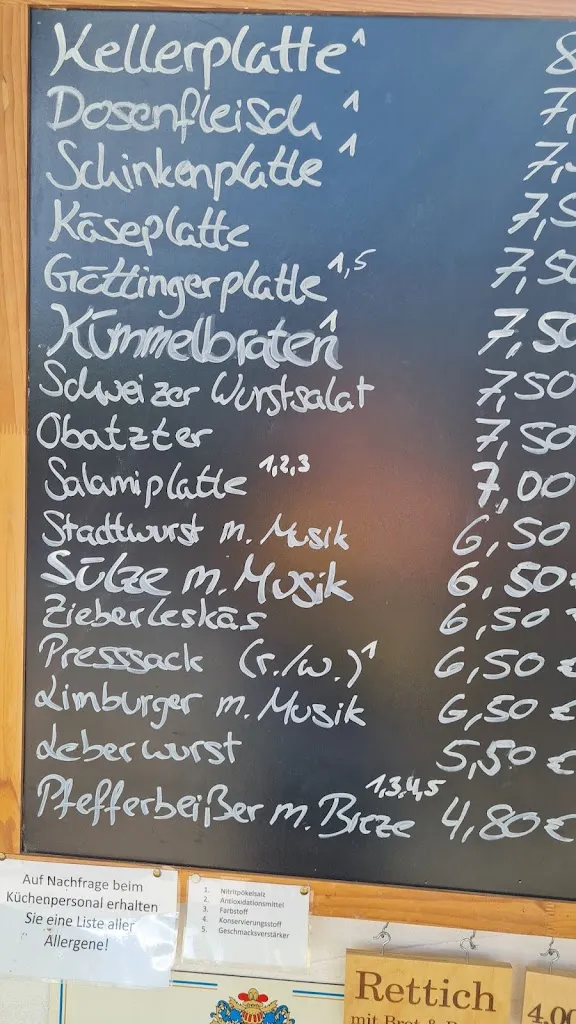 Kellerplatte ¹ 8
Dosenfleisch ¹ 7,
Schinkenplatte ¹ 7,5
Käseplatte 7,5
Göttingerplatte ¹,⁵ 7,50
Kümmelbraten ¹ 7,50
Schweizer Wurstsalat 7,50
Obatzter 7,50
Salamiplatte ¹,²,³ 7,00
Stadtwurst m. Musik 6,50
Sülze m. Musik 6,50 €
Zieberleskäs 6,50 €
Presssack (r./w.) ¹ 6,50 €
Limburger m. Musik 6,50 €
Leberwurst 5,50 €
Pfefferbeißer m. Breze ¹,³,⁴,⁵ 4,80 €
Auf Nachfrage beim
Küchenpersonal erhalten
Sie eine Liste aller
Allergene!
1. Nitritpökelsalz
2. Antioxidationsmittel
3. Farbstoff
4. Konservierungsstoff
5. Geschmacksverstärker
Rettich
mit Brot &
4,00